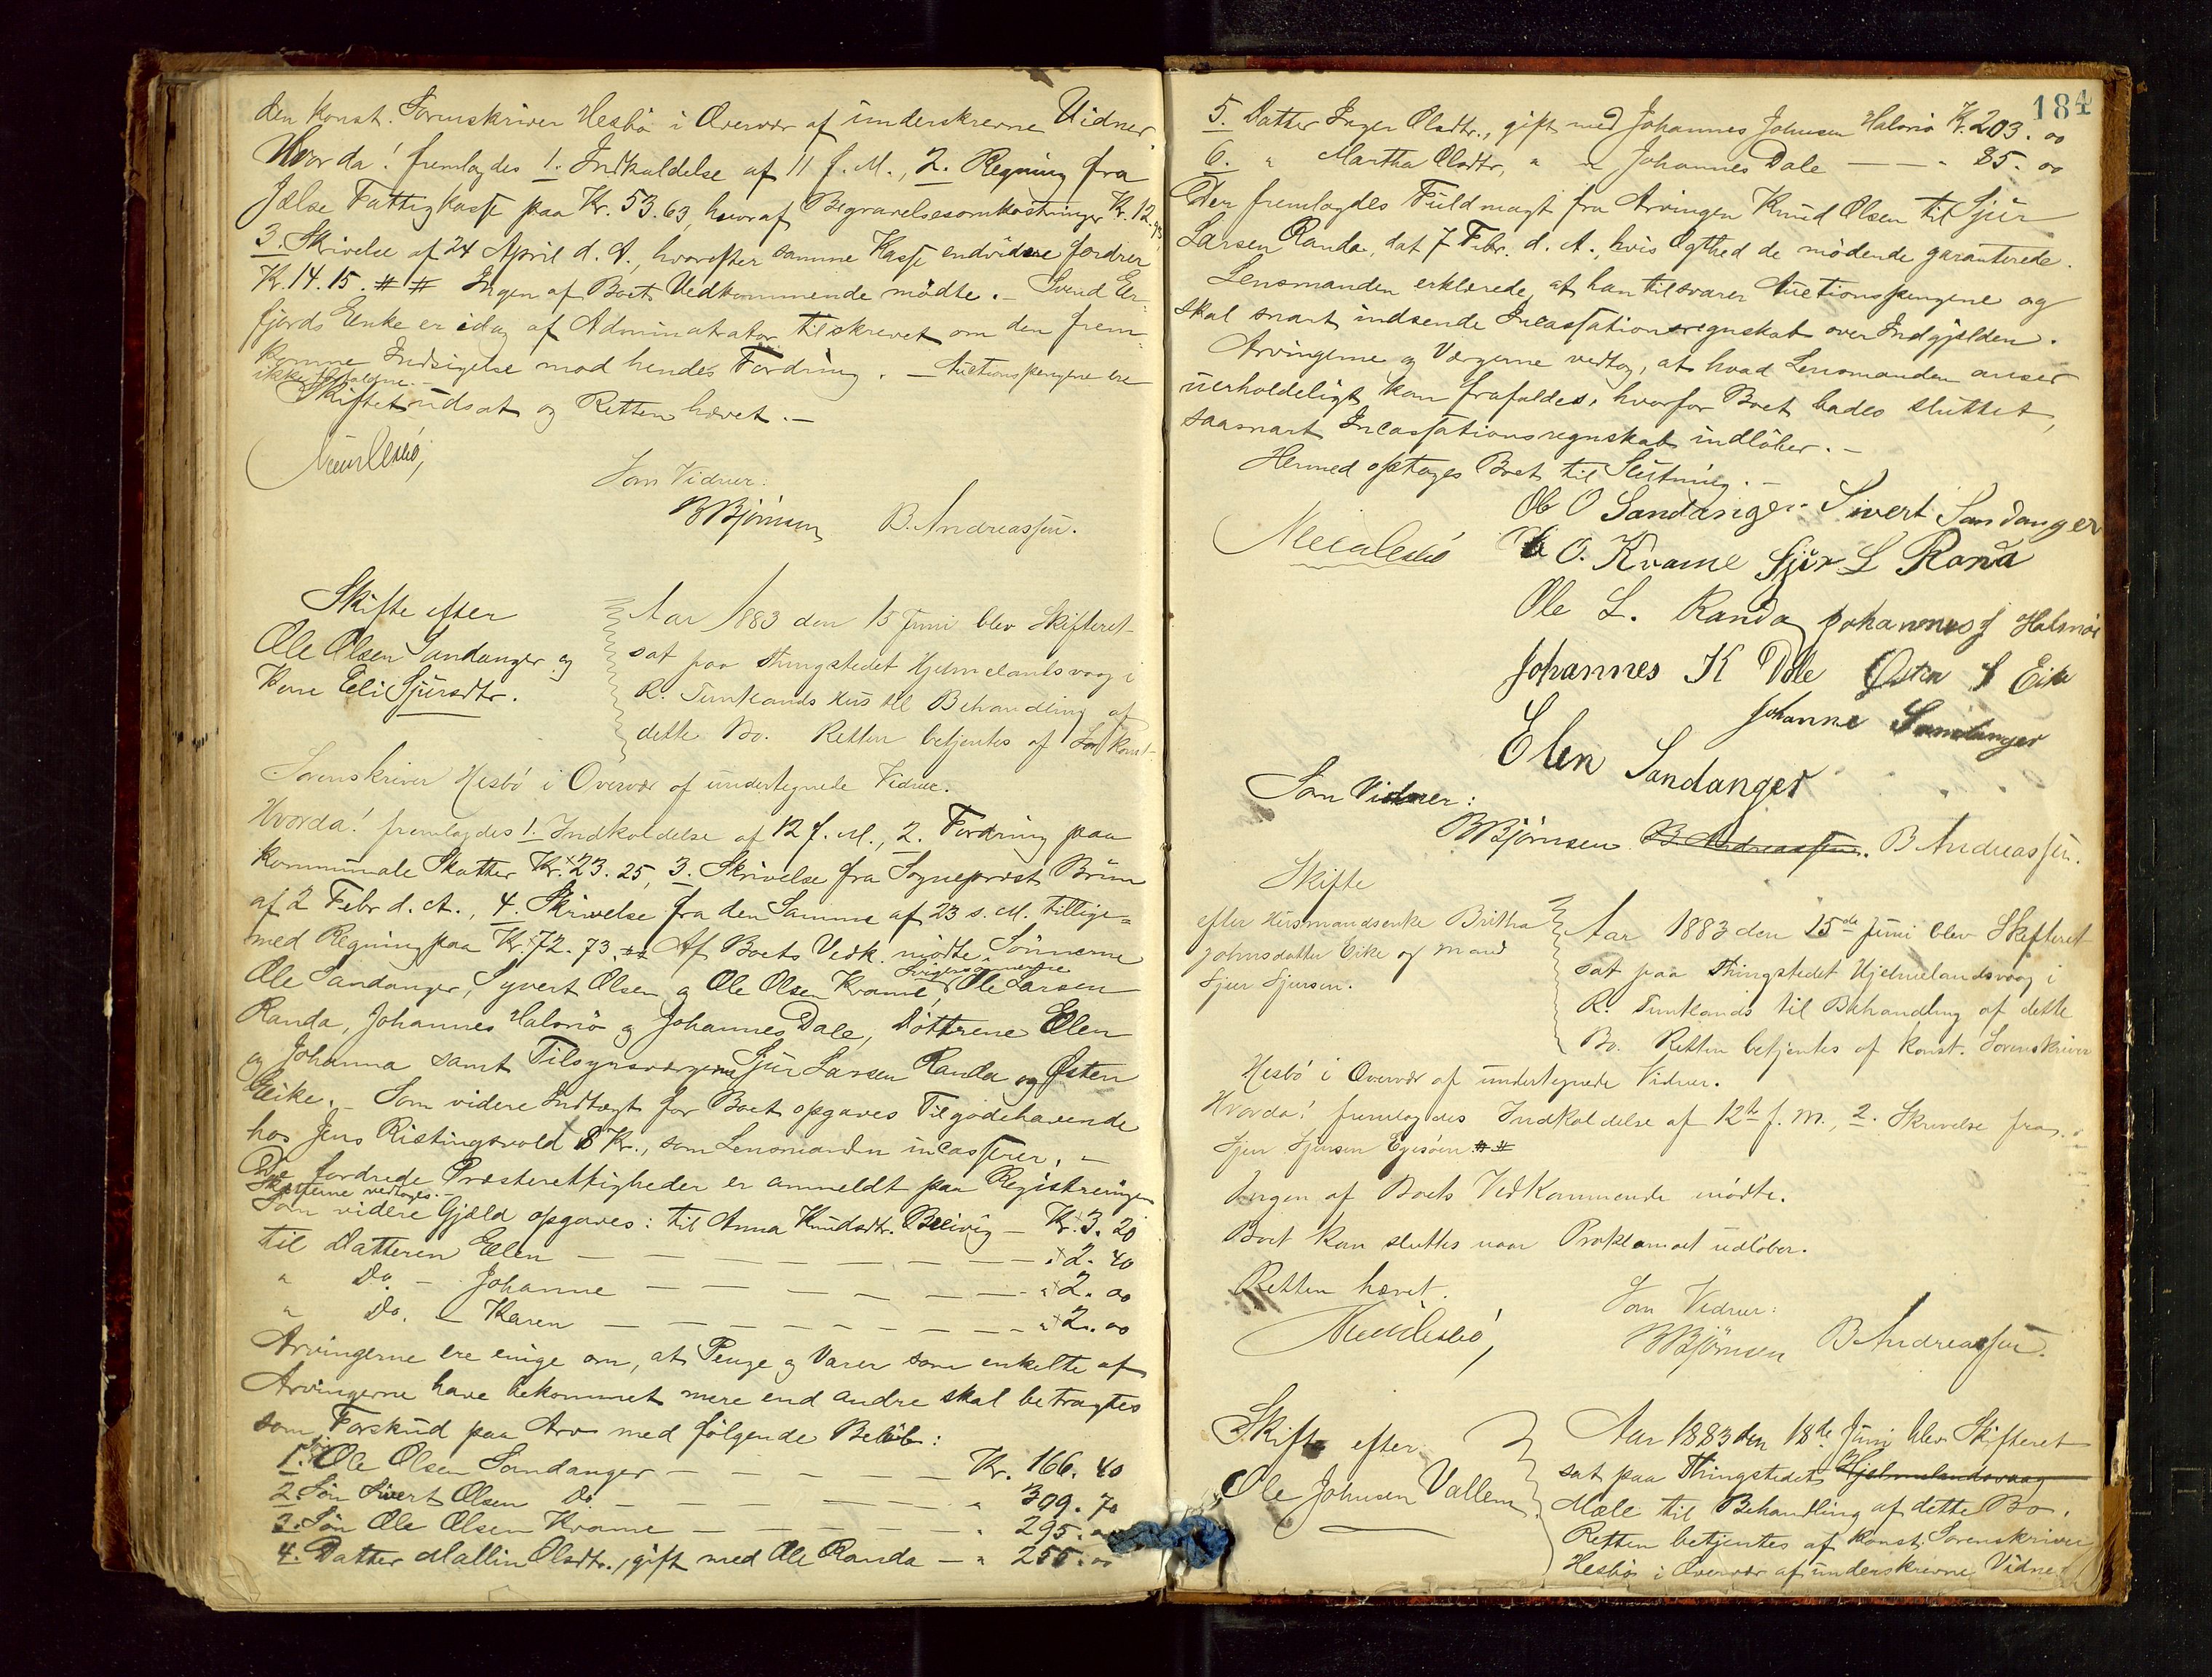 den konst. Sorenskriver Hesbö i Overvær af underskrevne Vidner
Hvorda! fremlagdes 1. Indkaldelse af 11 f. M., 2. Regning fra
Jelse Fattigkasse paa Kr. 53.63, hvoraf Begravelsesomkostninger Kr. 12
3. Skrivelse af 24 April d. A., hvorefter samme Kasse endvidere fordrer
Kr. 14.15. # # Ingen af Boets Vedkommende mödte. – Svend Er-
fjords Enke er idag af Administrator tilskrevet om den frem-
komne Indsigelse mod hendes Fordring. – Auctionspengene ere
ikke
Skiftet udsat og Retten hævet. –
Som Vidner:
BBjörnsen B. Andreassen.
Skifte efter
Ole Olsen Sandanger og
Kone Eli Sjursdtr.
Aar 1883 den 15 Juni blev Skifteret
sat paa Thingstedet Hjelmelandsvaag i
R. Tuntlands Hus til Behandling af
dette Bo. Retten betjentes af konst.
Sorenskriver Hesbö i Overvær af undertegnede Vidner.
Hvorda! fremlagdes 1. Indkaldelse af 12 f. M., 2. Fordring paa
kommunale Skatter Kr. 23.25, 3. Skrivelse fra Sogneprest Brun
af 2 Febr d. A., 4. Skrivelse fra den Samme af 23 s. M. tillige-
med Regning paa Kr. 72.73. ## Af Boets Vedk. mödte Sönnerne
Svigersönnerne
Ole Sandanger, Syvert Olsen og Ole Olsen Kvame, Ole Larsen
Randa, Johannes Halsnö og Johannes Dale, Döttrene Elen
og Johanna samt Tilsynsværgerne Sjur Larsen Randa og Østen
Eike. – Som videre Indtægt for Boet opgaves Tilgodehavende
hos Jens Ristingsvold 8 Kr., som Lensmanden incasserer. –
De fordrede Præsterettigheder er anmeldt paa Registreringen
Skatterne vedtoges.
Som videre Gjæld opgaves: til Anna Knudsdtr. – Kr. 3. 20
til Datteren Elen – – – – – – – " 2. 40
" Do. – Johanne – – – – – – " 2. 00
" Do. – Karen – – – – – – – " 2. 00
Arvingerne ere enige om, at Penge og Varer som enkelte af
Arvingerne have bekommet mere end andre skal betragtes
som Forskud paa Arv med fölgende Belöb:
1. Sön Ole Olsen Sandanger – – – – – Kr. 166. 40
2. Sön Sivert Olsen Do. – – – – – " 399. 70
3. Sön Ole Olsen Kvame – – – – – " 295.
4. Datter Mallin Olsdtr., gift med Ole Randa – " 255. 00
184
5. Datter Inger Olsdtr., gift med Johannes Johnsen Halsnö Kr. 203. 00
6. " Martha Olsdtr, " " Johannes Dale – – " 85. 00
Der fremlagdes Fuldmagt fra Arvingen Knud Olsen til Sjur
Larsen Randa, dat 7 Febr. d. A., hvis Ægthed de mödende garanterede.
Lensmanden erklærede, at han tilsvarer Auctionspengene og
skal snart indsende Incassationsregnskab over Indgjælden.
Arvingerne og Værgerne vedtog, at hvad Lensmanden anser
uerholdeligt kan frafaldes, hvorfor Boet bades sluttet,
saasnart Incassationsregnskab indlöber. –
Hermed optages Boet til Slutning. –
Ole O Sandanger Sivert Sandanger
O. Kvame Sjur L Randa
Ole L. Randa Johannes J Halsnöe
Johannes K Dale Østen S Eike
Johanne Sandanger
Elen Sandanger
Som Vidner:
BBjörnsen B. Andreassen. B Andreassen.
Skifte
efter Husmandsenke Britha
Johnsdatter Eike og Mand
Sjur Sjursen.
Aar 1883 den 15de Juni blev Skifteret
sat paa Thingstedet Hjelmelandsvaag i
R. Tuntlands til Behandling af dette
Bo. Retten betjentes af konst. Sorenskriver
Hesbö i Overvær af undertegnede Vidner.
Hvorda! fremlagdes Indkaldelse af 12te f. M., 2. Skrivelse fra
Sjur Sjursen # #
Ingen af Boets Vedkommende mödte.
Boet kan sluttes naar Proklamaet udlöber.
Retten hævet.
Som Vidner:
BBjörnsen B Andreassen.
Skifte efter
Ole Johnsen Vallem.
Aar 1883 den 18de Juni blev Skifteret
sat paa Thingstedet Hjelmelandsvaag
Mæle til Behandling af dette Bo.
Retten betjentes af konst. Sorenskriver
Hesbö i Overvær af underskrevne Vidner